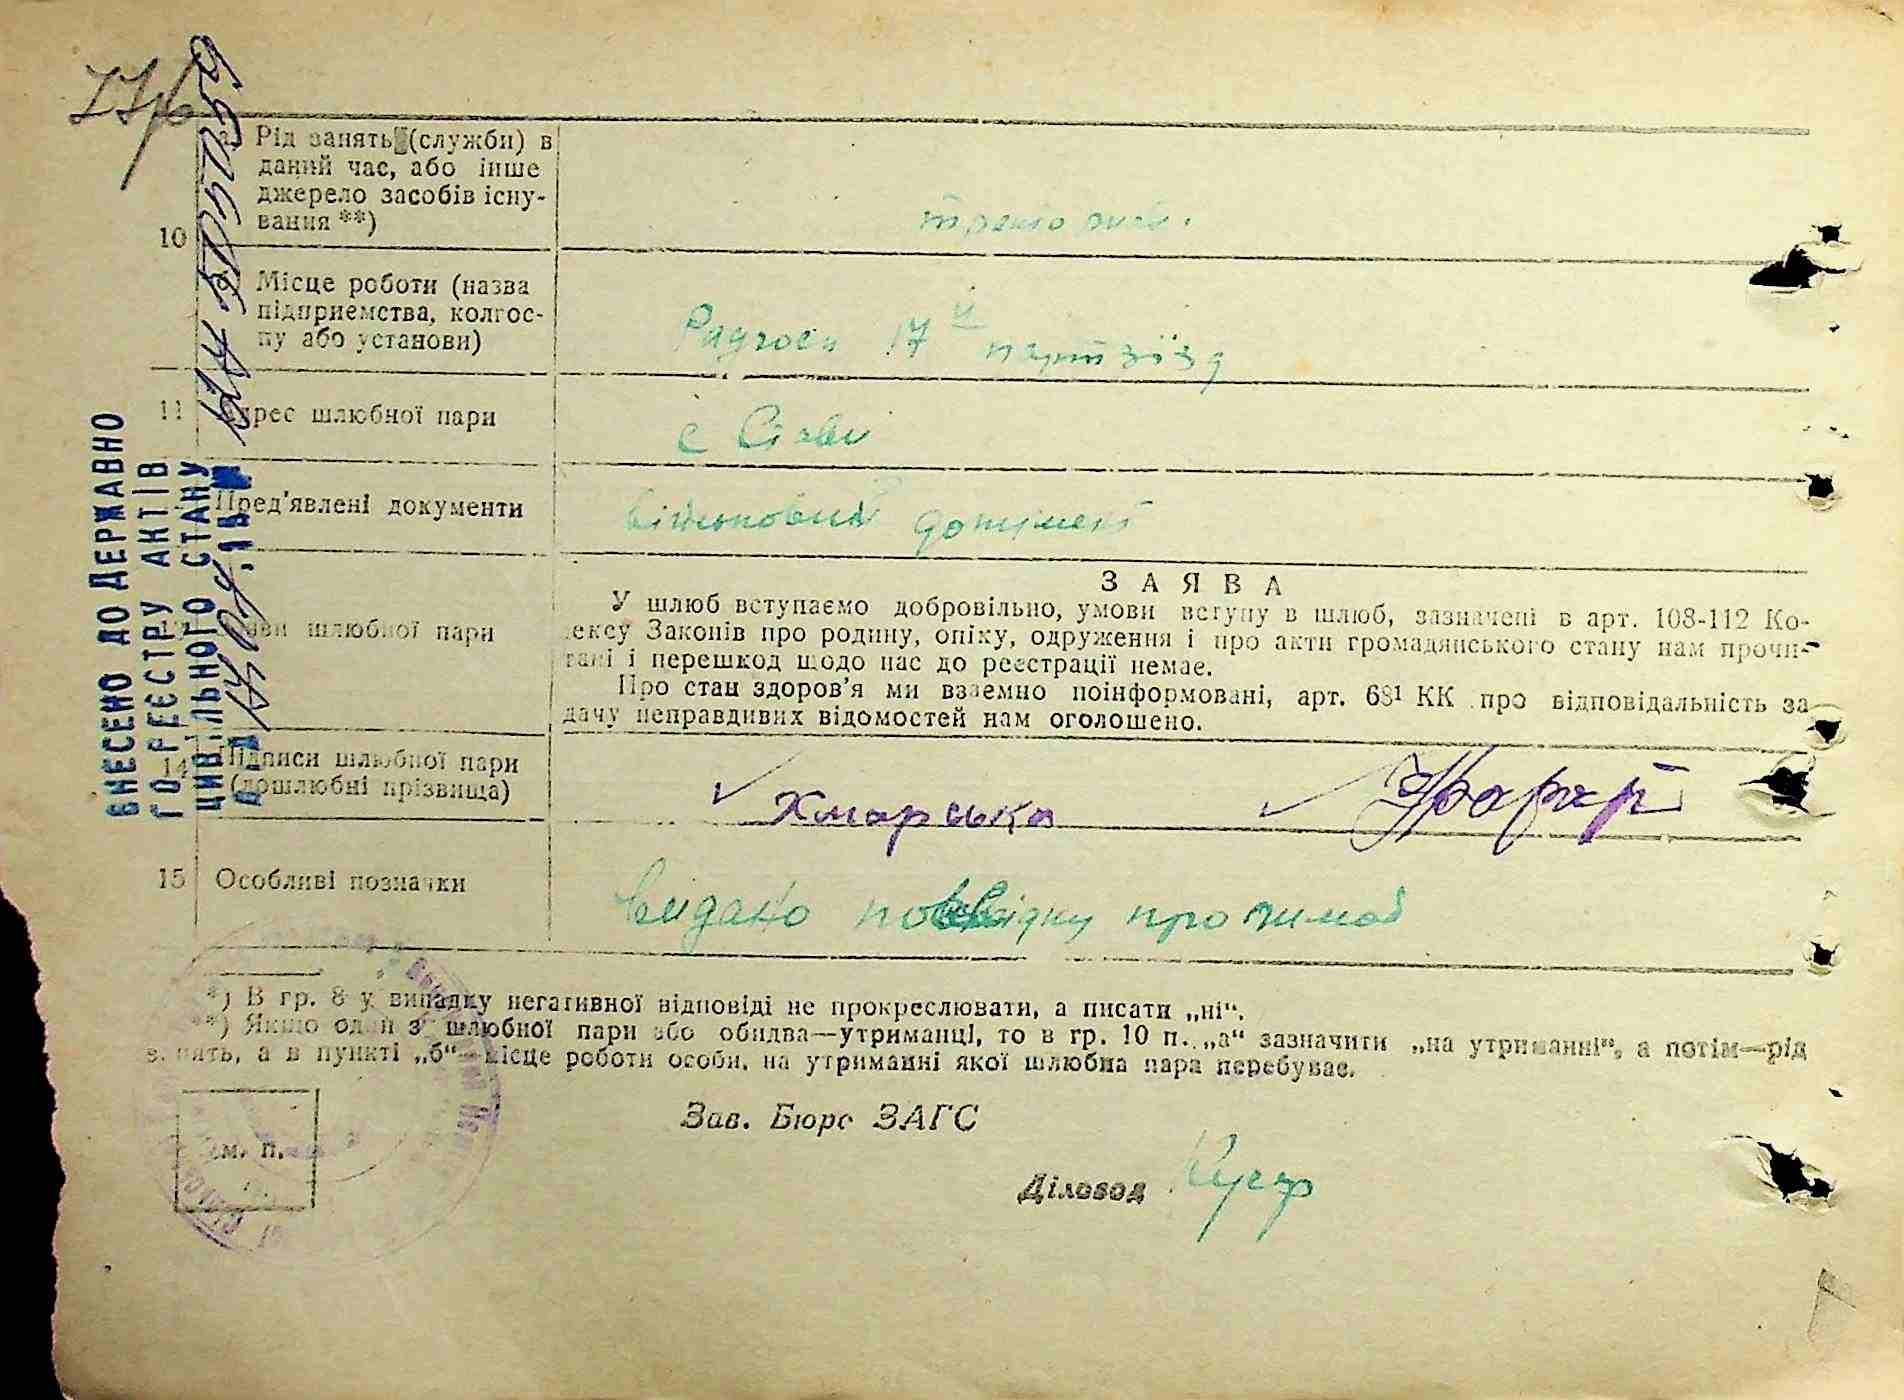 Рід занять (служби) в
даний час, або інше
джерело засобів існу-
вання **)
10
Місце роботи (назва
підприємства, колгос-
пу або установи)
Радгосп 17 й партзїзд
11 Адрес шлюбної пари
с
Пред'явлені документи
військовий документ
ЗАЯВА
У шлюб вступаємо добровільно, умови вступу в шлюб, зазначені в арт. 108-112 Ко-
дексу Законів про родину, опіку, одруження і про акти громадянського стану нам прочи-
тані і перешкод щодо нас до реєстрації немає.
Про стан здоров'я ми взаємно поінформовані, арт. 68¹ КК про відповідальність за
дачу неправдивих відомостей нам оголошено.
шлюбної пари
14 Підписи шлюбної пари
(дошлюбні прізвища)
Хмарська
15 Особливі позначки
видано посвідку про
*) В гр. 8 у випадку негативної відповіді не прокреслювати, а писати „ні“.
**) Якщо один з шлюбної пари або обидва—утриманці, то в гр. 10 п. „а“ зазначити „на утриманні“, а потім—рід
занять, а в пункті „б“—місце роботи особи, на утриманні якої шлюбна пара перебуває.
Зав. Бюро ЗАГС
м. п.
Діловод
ВНЕСЕНО ДО ДЕРЖАВНО
ГО РЕЄСТРУ АКТІВ
ЦИВІЛЬНОГО СТАНУ